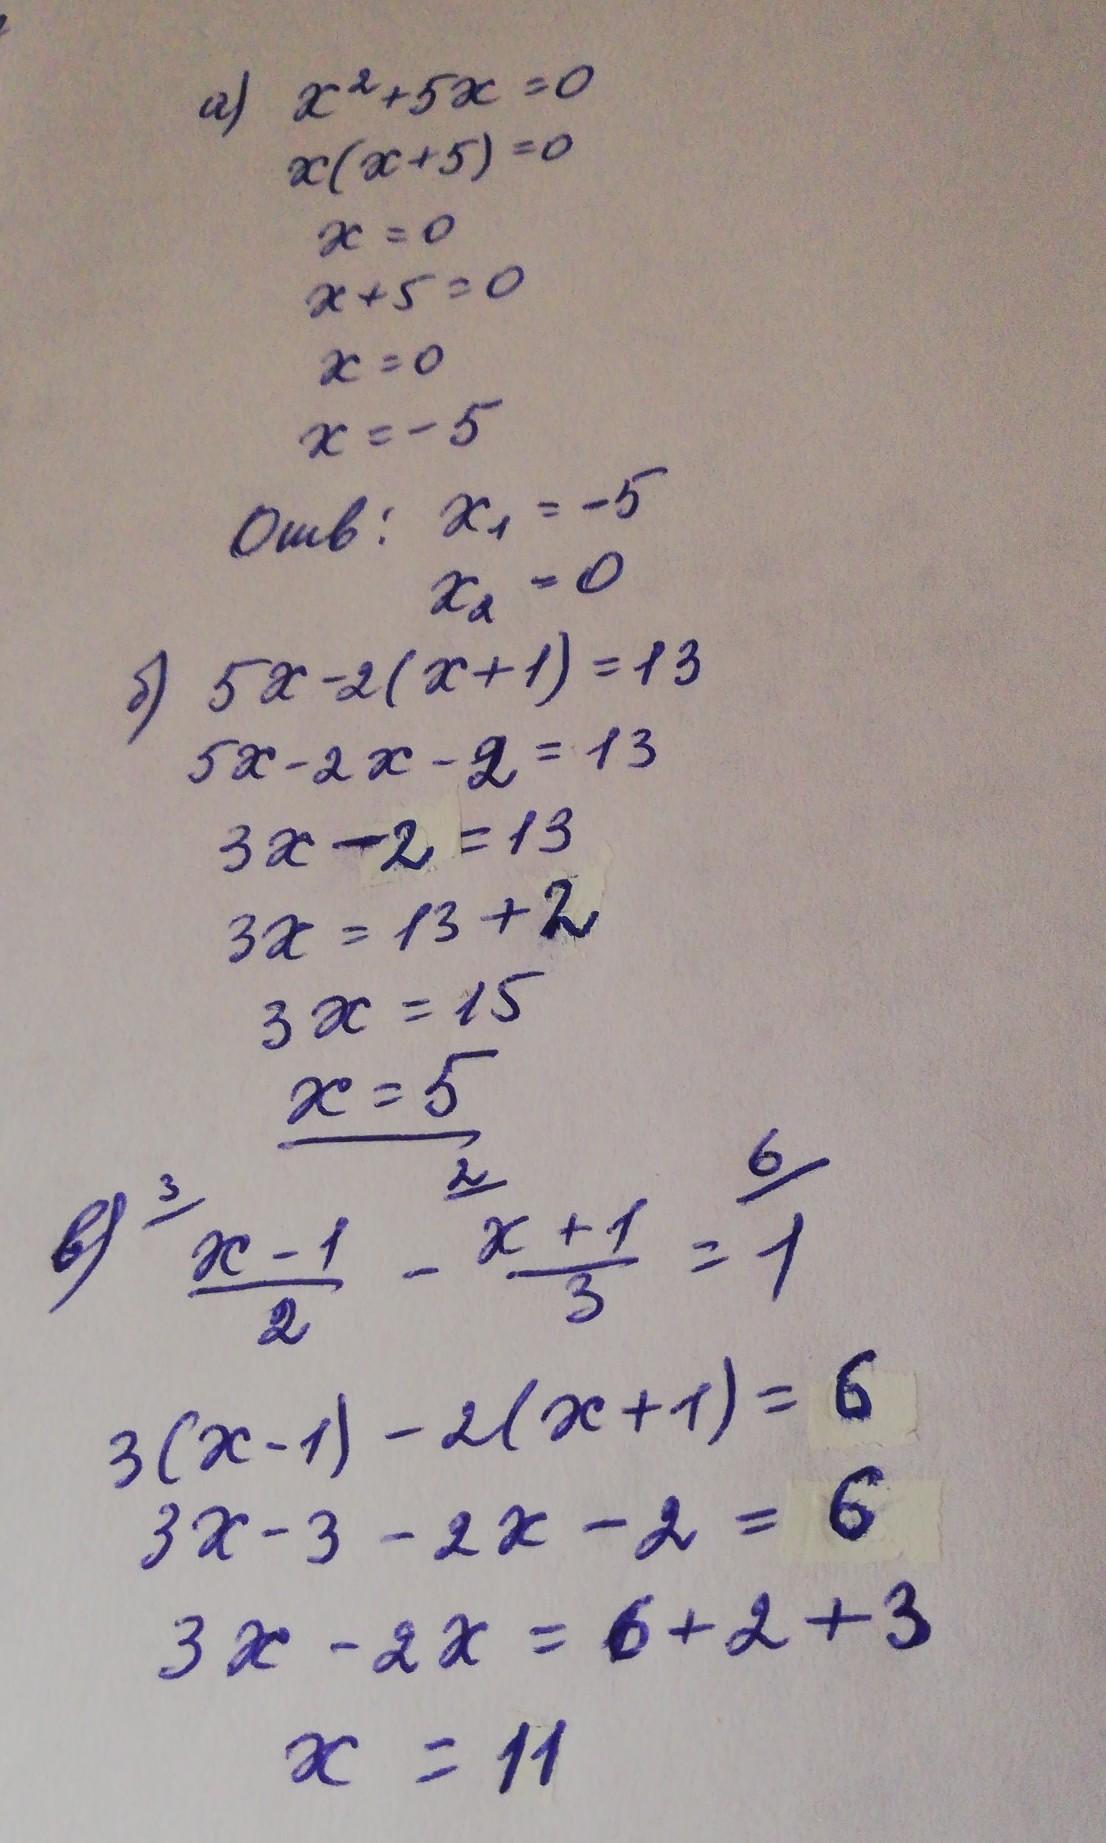 а) x²+5x=0
x(x+5)=0
x=0
x+5=0
x=0
x=-5
Отв: x₁=-5
x₂=0
б) 5x-2(x+1)=13
5x-2x-2=13
3x-2=13
3x=13+2
3x=15
x=5
3/ 2/ 6/
в) (x-1)/2 - (x+1)/3 = 1
3(x-1)-2(x+1)=6
3x-3-2x-2=6
3x-2x=6+2+3
x=11